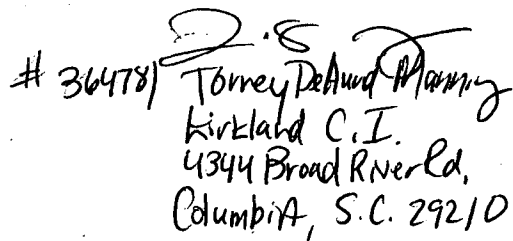 # 364781 Torrey DeAund Manning
Kirkland C.I.
4344 Broad River Rd,
Columbia, S.C. 29210